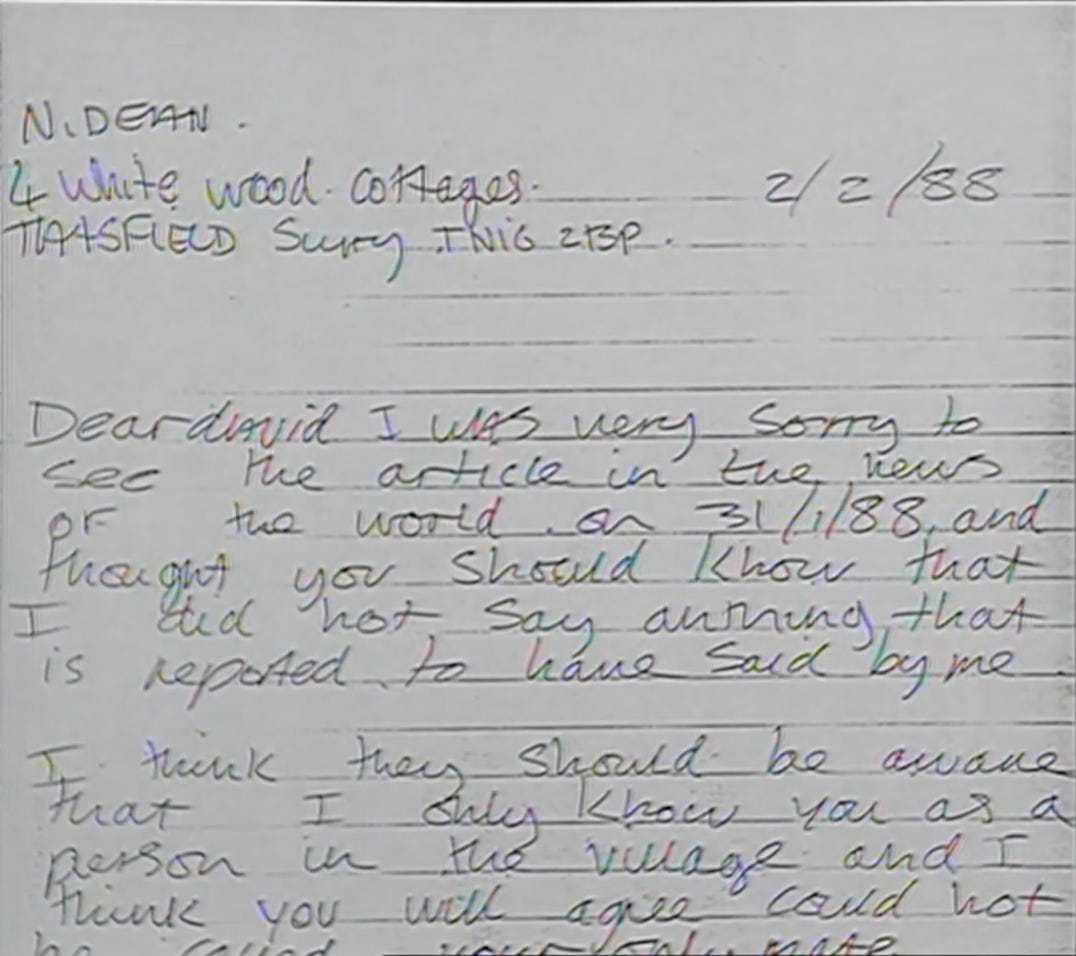 N. DEAN.
4 White wood cottages. 2/2/88
TATSFIELD Surry TN16 2BP.
Dear david I was very sorry to
see the article in the news
of the world on 31/1/88, and
thought you should know that
I did not say anthing that
is reported to have said by me.
I think they should be aware
that I only know you as a
person in the village and I
think you will agree could not
be called your only mate